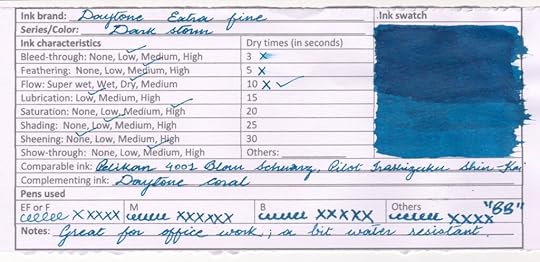 Ink brand: Daytone Extra fine Ink swatch
Series/Color: Dark storm
Ink characteristics Dry times (in seconds)
Bleed-through: None, Low, Medium, High 3 x
Feathering: None, Low, Medium, High 5 x
Flow: Super wet, Wet, Dry, Medium 10 x ✓
Lubrication: Low, Medium, High 15
Saturation: None, Low, Medium, High 20
Shading: None, Low, Medium, High 25
Sheening: None, Low, Medium, High 30
Show-through: None, Low, Medium, High Others:
Comparable ink: Pelikan 4001 Blau Schwarz, Pilot Iroshizuku Shin Kai
Complementing ink: Daytone coral
Pens used
EF or F M B Others "BB"
xxxxx xxxxxx xxxxx xxxx
Notes: Great for office work; a bit water resistant.